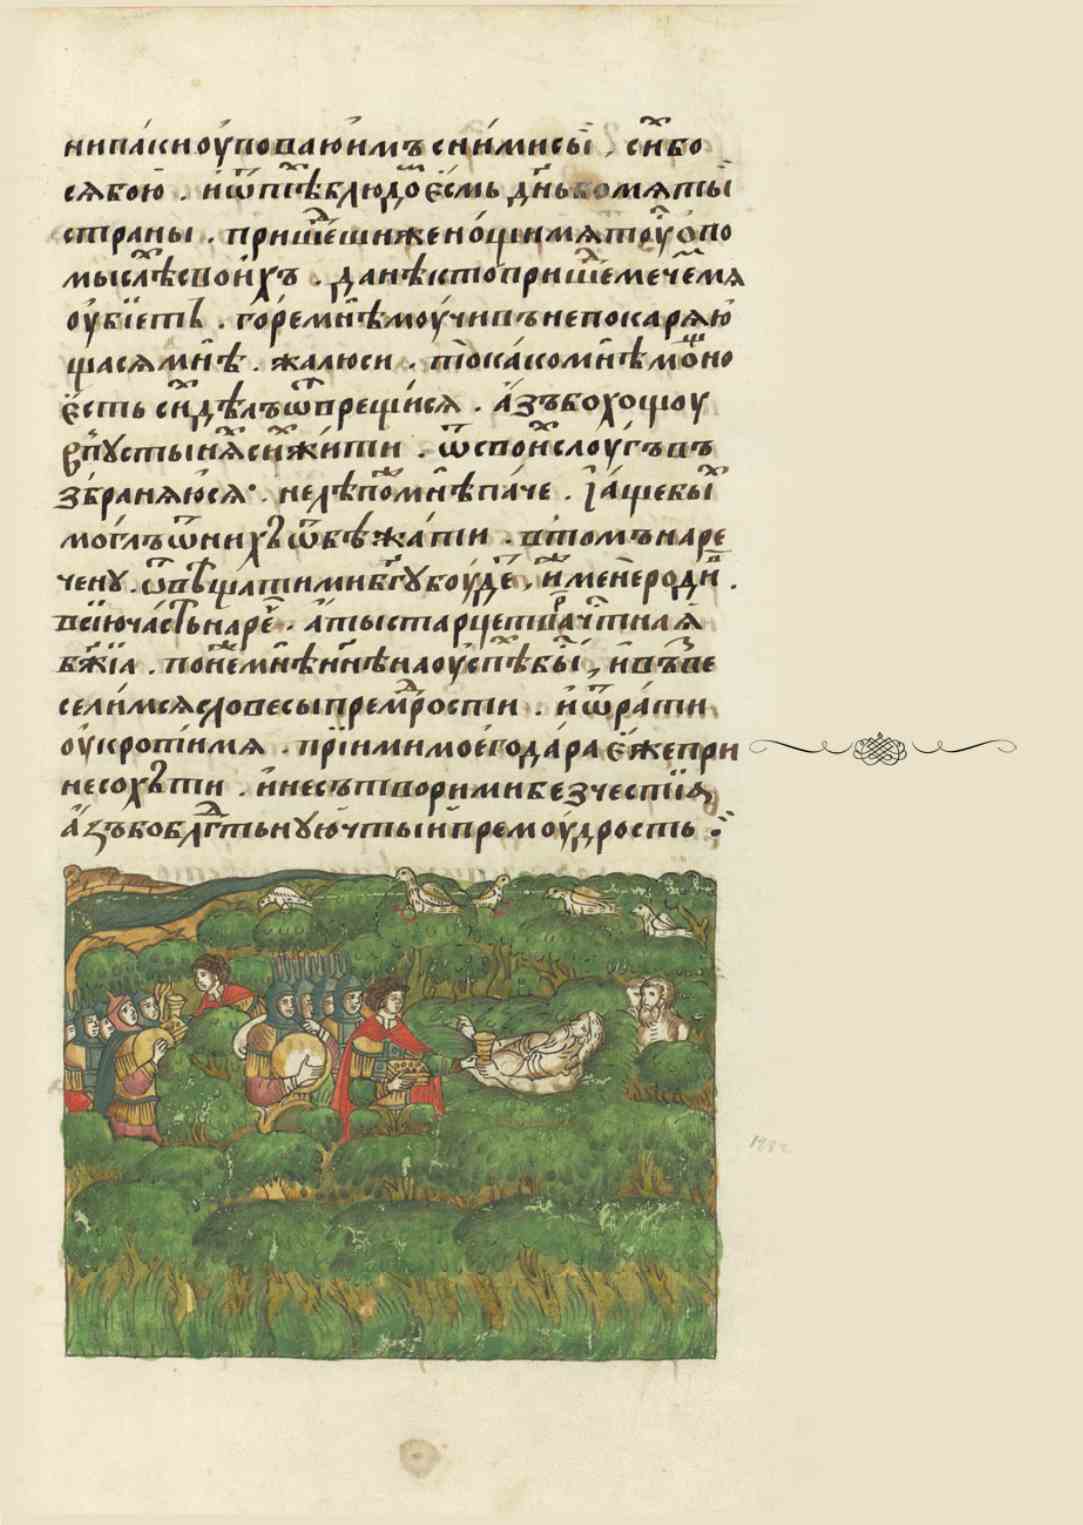 нипакиоуповаюимъ с ними сы . сихъ бо
сѧ бою . и ѿ всѣ блюдо есмь днь волѧты
страны . пришеши же нощи мѧтоу опо
мыслѣ своихъ . да нѣкто прише мече мѧ
оубіетъ . горе мнѣ моучивъ непокарѧю
щасѧ мнѣ . жалюси . то како мнѣ мощно
есть си дѣлъ ѿпрещисѧ . азъ бо хощоу
впустынѧ сиⷯ жити . ѿ свои слоугъ въ
збранѧюсѧ . не лѣпо мнѣ паче . іаще бы
моглъ ѿ нихъ ѿбѣжати . втомъ наре
чену . ѿвѣщати ми бгу боуде . имене роди .
всію часть наре . а ты старче
бжіа . поне мнѣ ннѣ на оуспѣ бы , и въз ве
селимсѧ словесы премрости . и ѿ рати
оукротимѧ . пріими мое годара еже при
несохъ ти . и не сътвори ми безчестіѧ
азъ бо блгтьную чты и премоудрость :